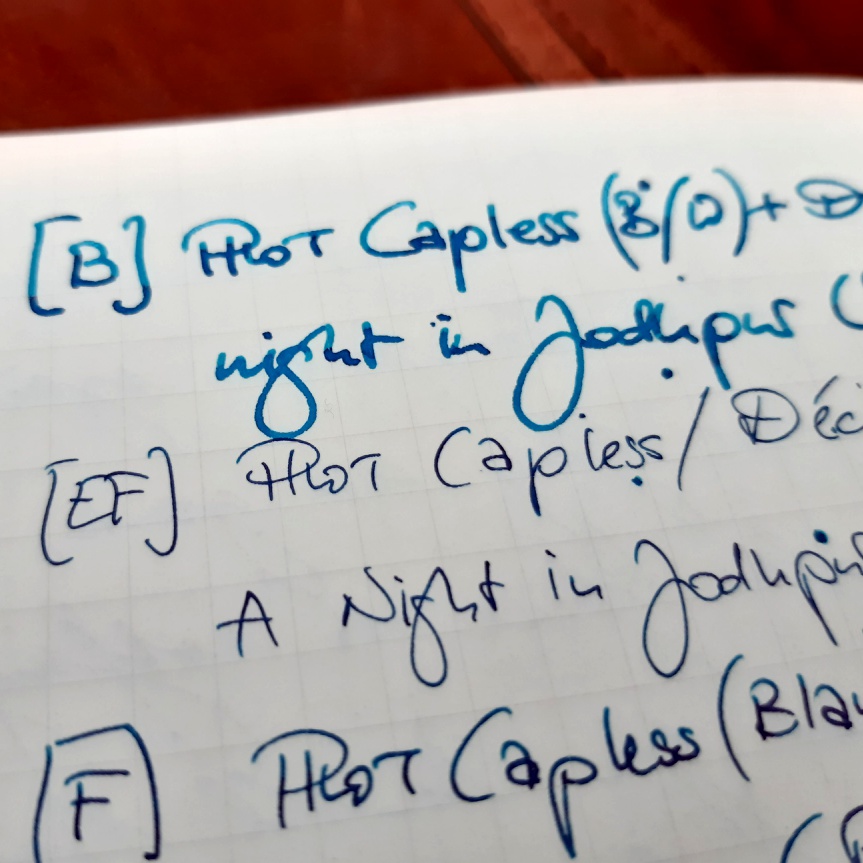 [B] PILOT Capless (B/D) + D
night in Jodhpur (
[EF] PILOT Capless / Déci
A Night in Jodhpur
[F] PILOT Capless (Blau